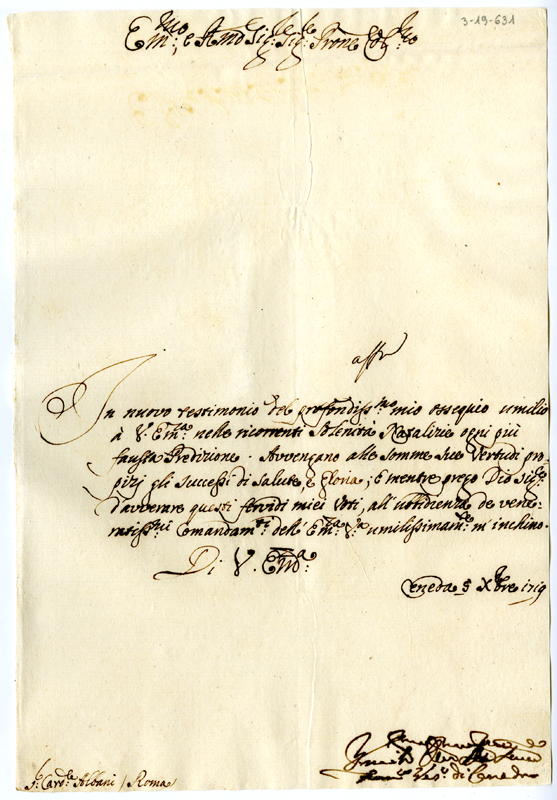 3-19-631
Em:mo, e Rmo Sig:r Sig:r Prone Col:mo
affo
In nuovo testimonio del profondiss:mo mio ossequio umilio
à V. Em:za nelle ricorrenti Solenità Natalizie ogni più
fausta Predizione. Avvengano alle somme Sue Vertù di pro-
pizj gli Successi di Salute, e Gloria; e mentre prego Dio Sig:re
d'avverare questi fervidi miei Voti, all'ubbidienza de vene-
ratiss:mi Comandam:ti dell'Em:za V:ra umilissimam:te m'inchino.
Di V. Em:za
Ceneda 5 Xbre 1719
S:r Card:le Albani / Roma
di Ceneda